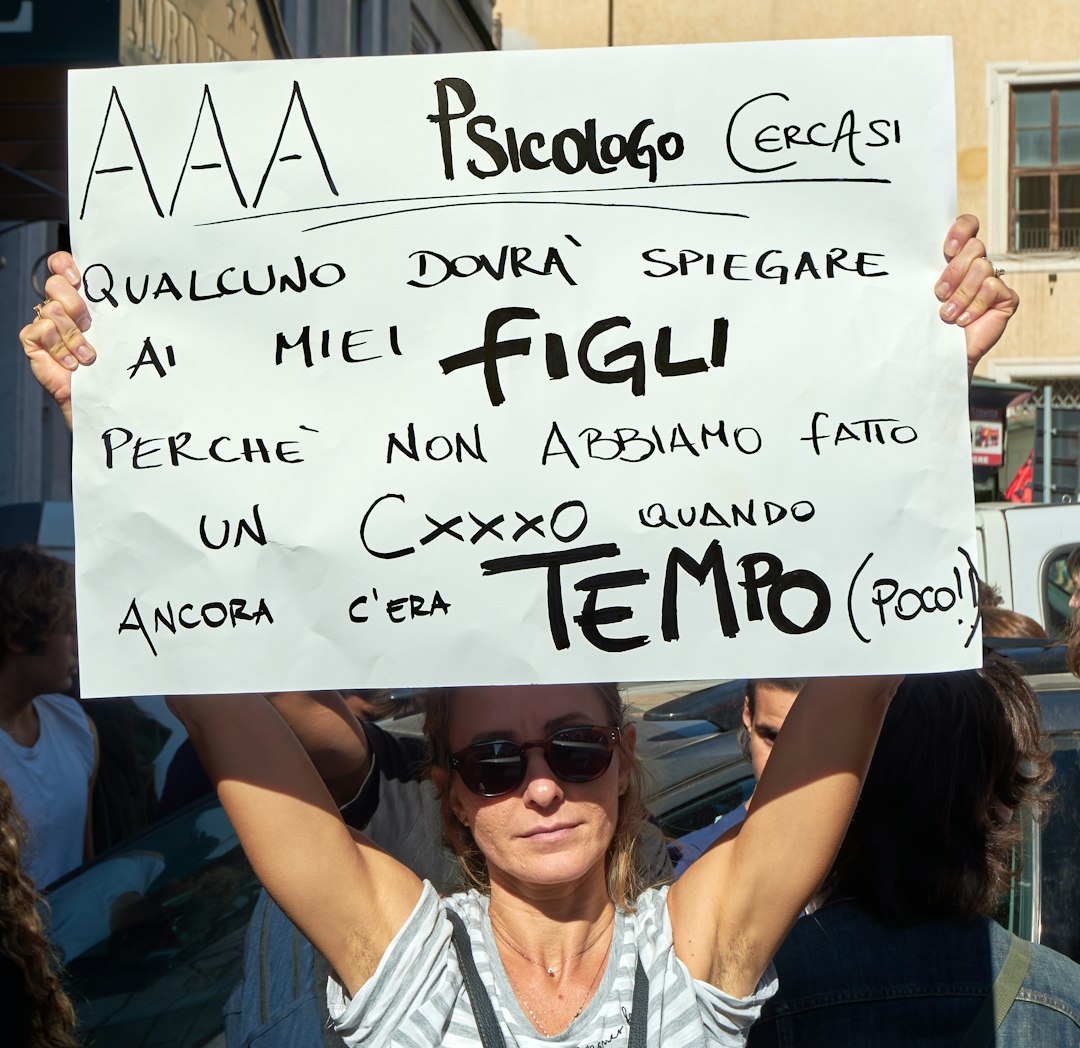 AAA PSICOLOGO CERCASI
QUALCUNO DOVRA` SPIEGARE
AI MIEI FIGLI
PERCHE` NON ABBIAMO FATTO
UN CXXXO QUANDO
ANCORA C'ERA TEMPO (POCO!)